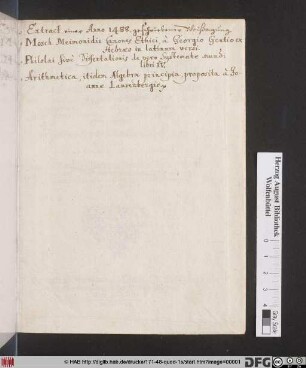 Extract einer Anno 1488. geschriebenen
Mosch. Meimonidis Canones Ethici à Georgio Gentio ex
Hebræo in latinum versi.
Philolai sive Dissertationis de vero Systemate mundi
libri IV.
Arithmetica, itidem Algebra principia, proposita à Jo-
anne Laurenbergio
Herzog August Bibliothek
Wolfenbüttel
© HAB http://diglib.hab.de/drucke/171-48-quod-1s/start.htm?image=00001
DFG